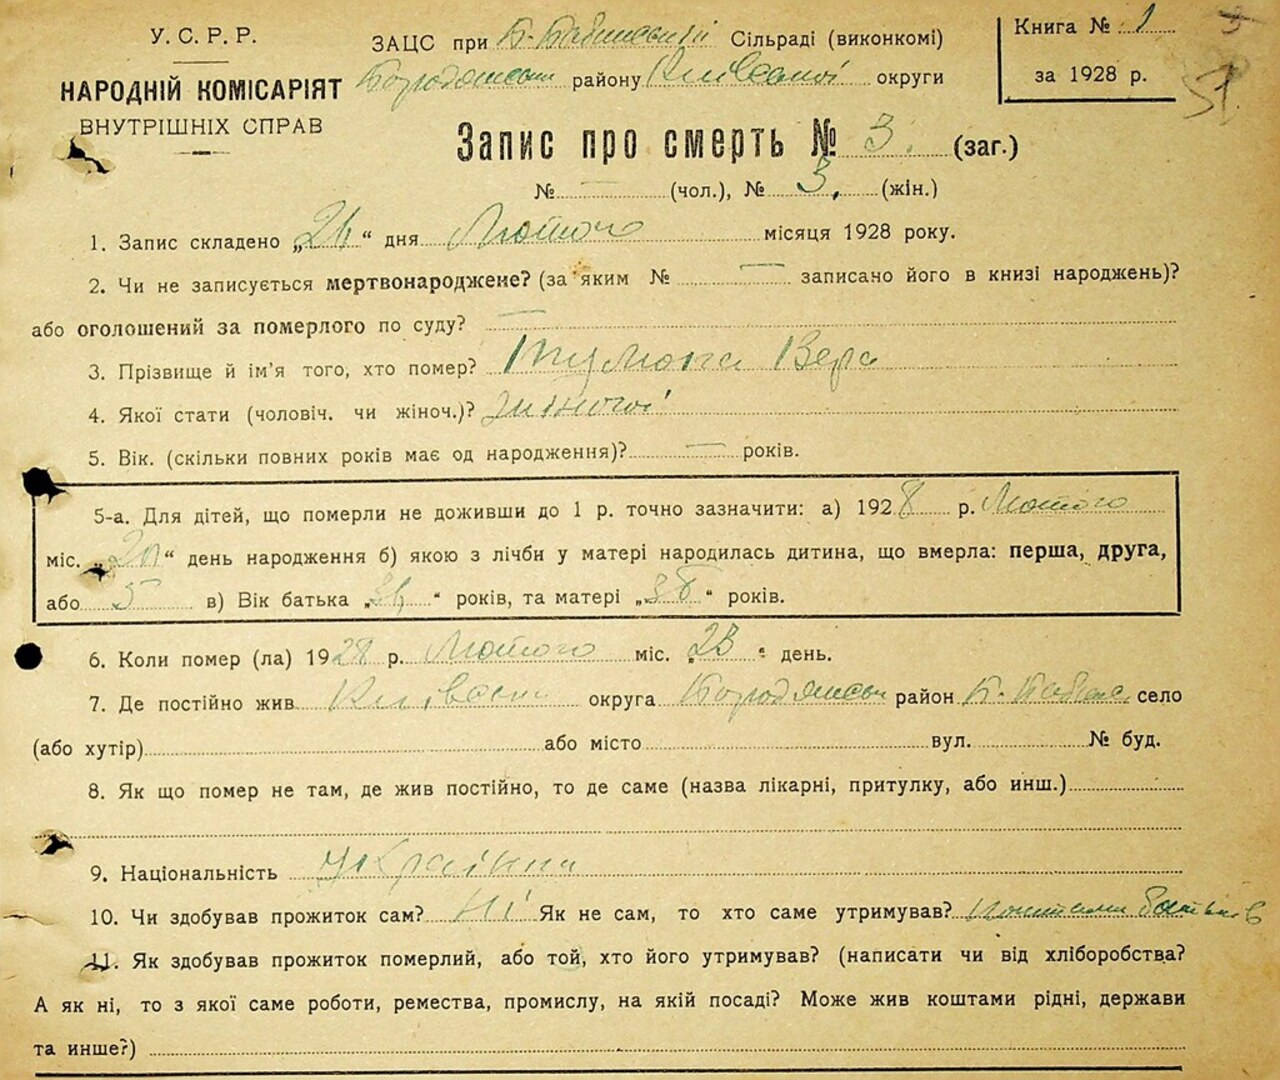 У.С.Р.Р.
НАРОДНІЙ КОМІСАРІЯТ
ВНУТРІШНІХ СПРАВ
ЗАЦС при Сільраді (виконкомі)
Бородянськ району Київської округи
Книга № 1
за 1928 р.
51
Запис про смерть № 3. (заг.)
№ — (чол.), № 3. (жін.)
1. Запис складено „ “ дня Лютого місяця 1928 року.
2. Чи не записується мертвонароджене? (за яким № — записано його в книзі народжень)?
або оголошений за померлого по суду? —
3. Прізвище й ім'я того, хто помер? Вера
4. Якої стати (чоловіч. чи жіноч.)? жіночої
5. Вік. (скільки повних років має од народження)? — років.
5-а. Для дітей, що померли не доживши до 1 р. точно зазначити: а) 1928 р. Лютого
міс. „ “ день народження б) якою з лічби у матері народилась дитина, що вмерла: перша, друга,
або 5 в) Вік батька „ “ років, та матері „ “ років.
6. Коли помер (ла) 1928 р. Лютого міс. „23“ день.
7. Де постійно жив Київськ округа Бородянськ район село
(або хутір) або місто вул. № буд.
8. Як що помер не там, де жив постійно, то де саме (назва лікарні, притулку, або инш.)
9. Національність Українка
10. Чи здобував прожиток сам? Ні Як не сам, то хто саме утримував? коштами батьків
11. Як здобував прожиток померлий, або той, хто його утримував? (написати чи від хліборобства?
А як ні, то з якої саме роботи, ремества, промислу, на якій посаді? Може жив коштами рідні, держави
та инше?)